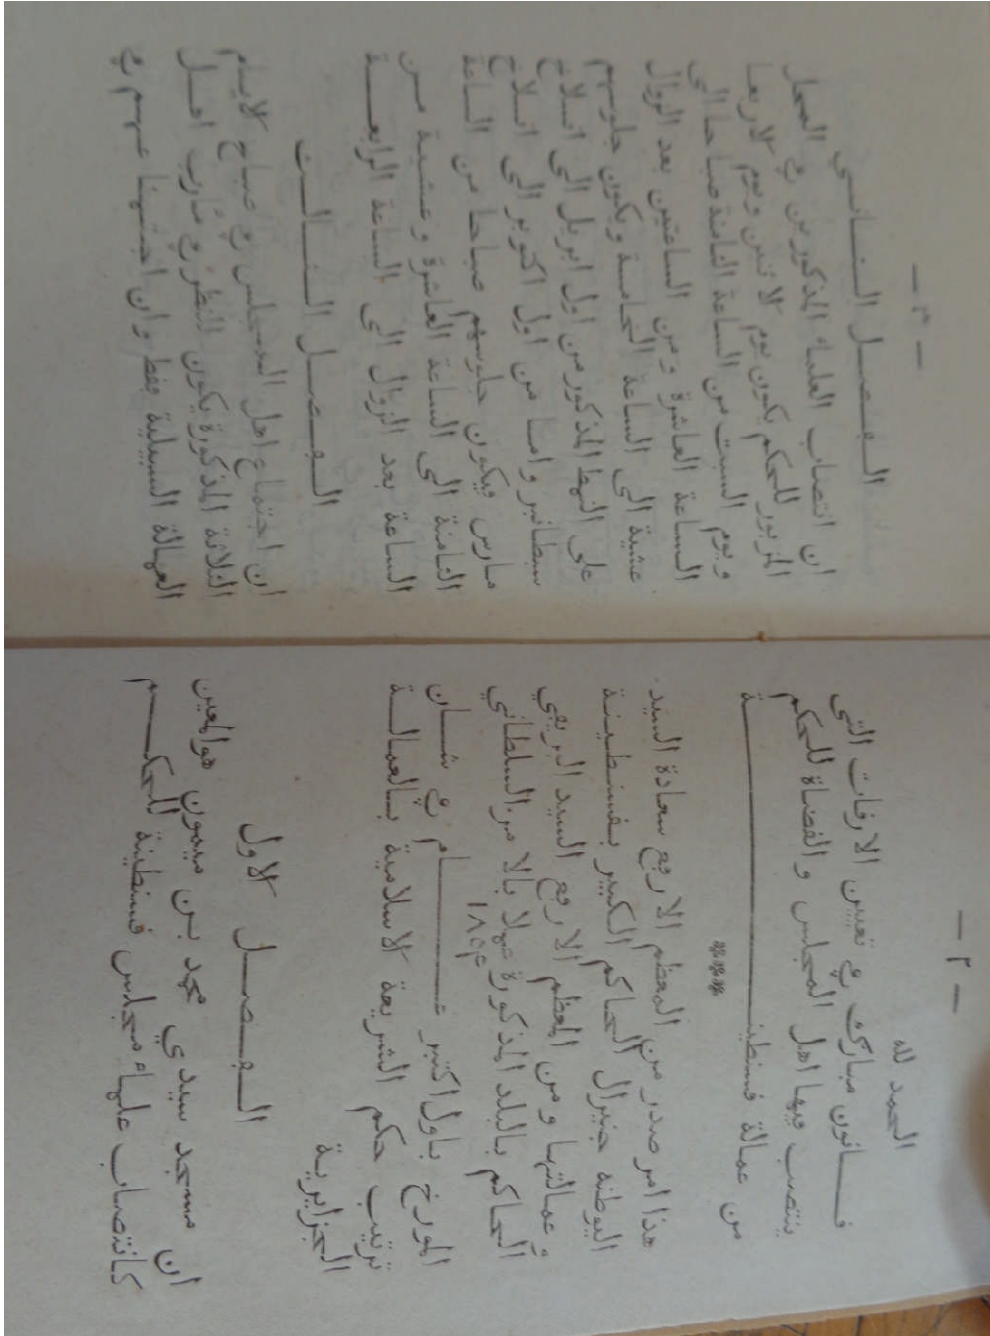 — ٢ —
الحمد لله
فــانون مبارك في تعيين الاوفات التي
ينتصب فيها اهل المجلس والفضاة للحكم
من عمالة فسنطينـــــــة
***
هذا امر صدر من المعظم الارفع سعادة السيد
اليوطنه جنيرال الحاكم الكبير بفسنطينة
وعمالتها ومن المعظم الارفع السيد البريفي
الحاكم بالبلد المذكورة عملا بالامر السلطاني
المورخ باول اكتبر عــــام ١٨٥٤ في شــان
ترتيب حكم الشريعة الاسلامية بالعمالــة
الجزايرية
الــفــصــل الاول
ان مسجد سيدي محمد بن ميمون هو المعين
لانتصاب علماء مجلس فسنطينة للحكــم
— ٣ —
الــفــصــل الــثــانــي
ان انتصاب العلماء المذكورين في المحل
المزبور للحكم يكون يوم الاثنين ويوم الاربعا
ويوم السبت من الساعة الثامنة صباحا الى
الساعة العاشرة ومن الساعتين بعد الزوال
عشية الى الساعة الخامسة ويكون جلوسهم
على النمط المذكور من اول ابريل الى انسلاخ
سبطانبر واما من اول اكتوبر الى انسلاخ
مارس فيكون جلوسهم صباحا من الساعة
الثامنة الى الساعة العاشرة وعشية مــن
الساعة بعد الزوال الى الساعة الرابعــة
الــفــصــل الــثــالــث
ان اجتماع اهل المجلس في صباح الايام
الثلاثة المذكورة يكون للنظر في مآرب اهــل
العمالة السيبلية ففط وان اجتماعهم في